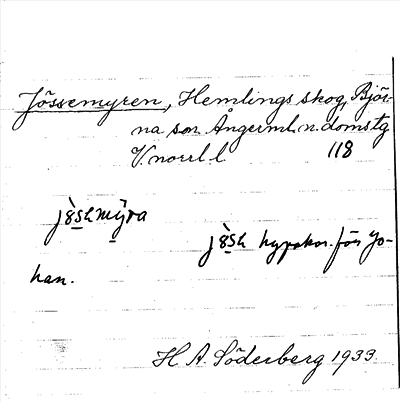 Jössemyren, Hemlings skog, Björ-
na sn. Ångerml. n. domstg
V. norrl. l. 118
jö̀sꞕmy̆ra
jö̀sꞕ hypokor. för Jo-
han.
H A Söderberg 1933